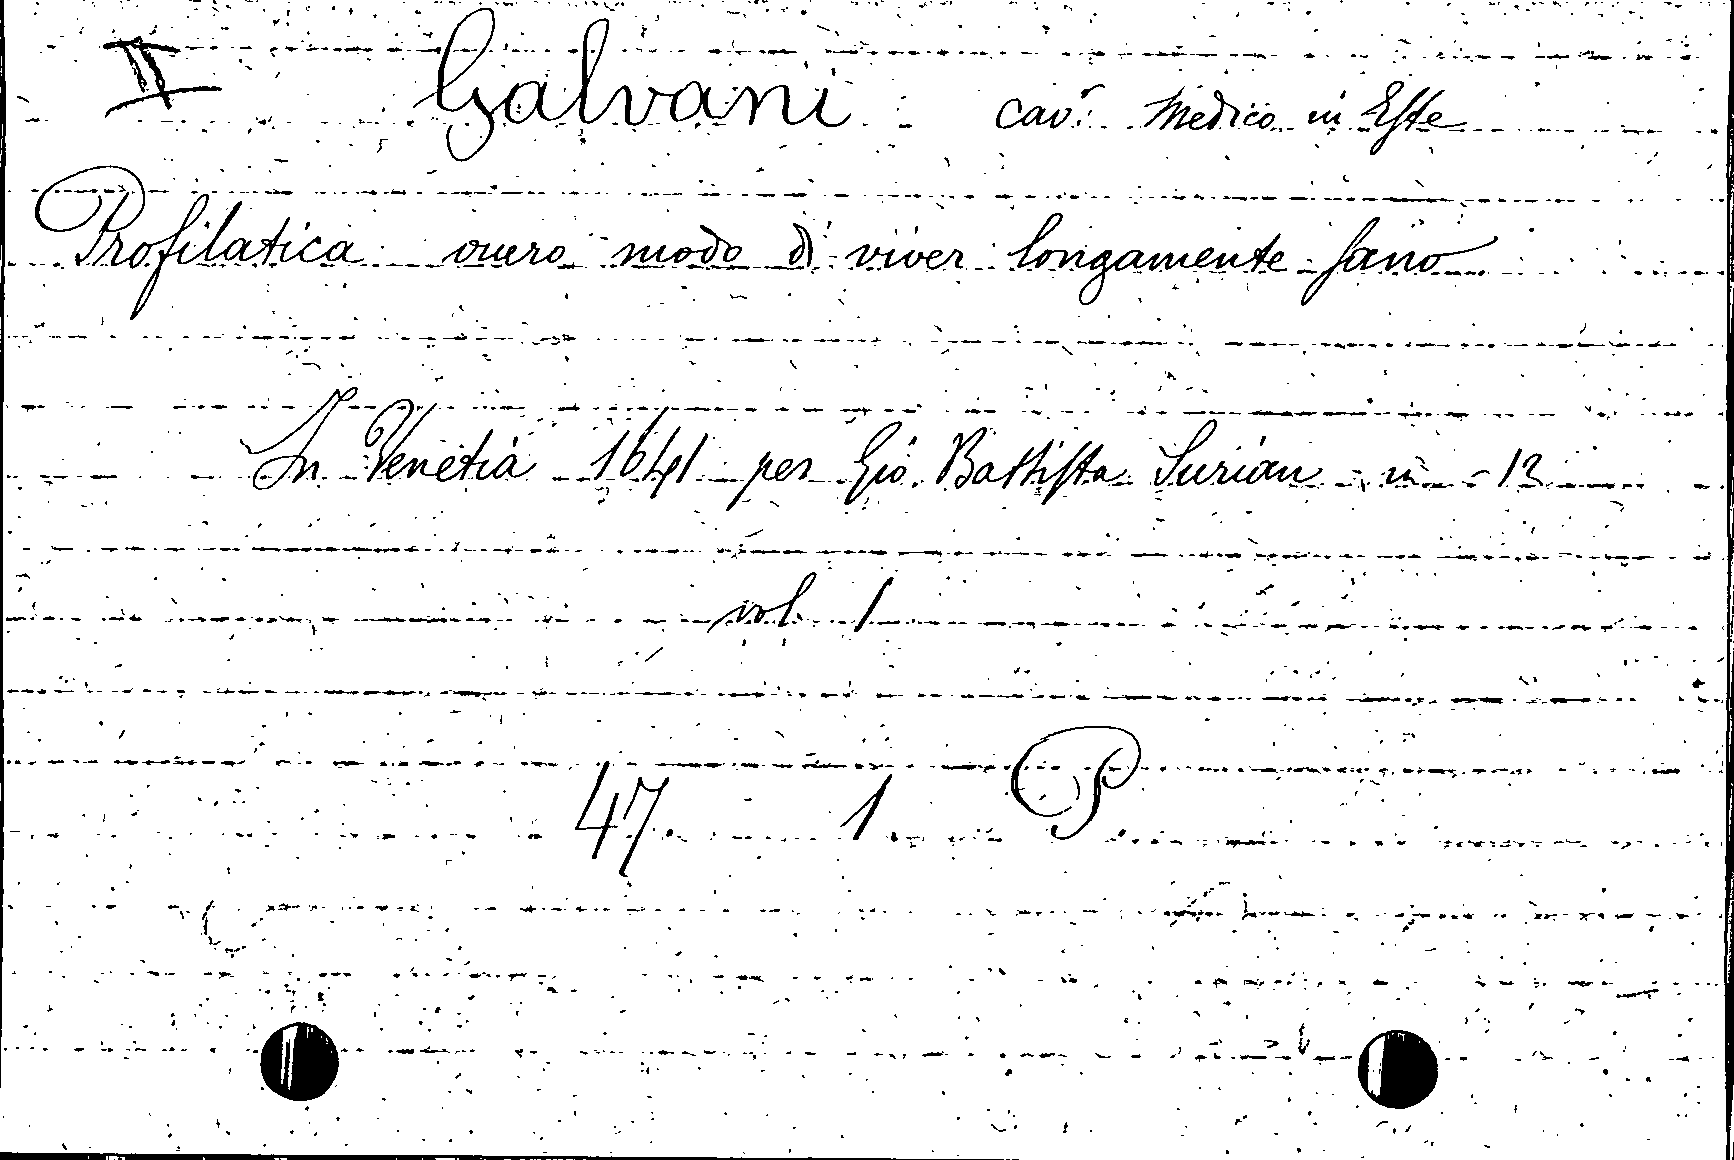 II Galvani cav.r Medico in Este
Profilatica overo modo di viver longamente sano
In Venetia 1641 per Gio. Battista Surian in - 12
vol. 1
47. 1. P